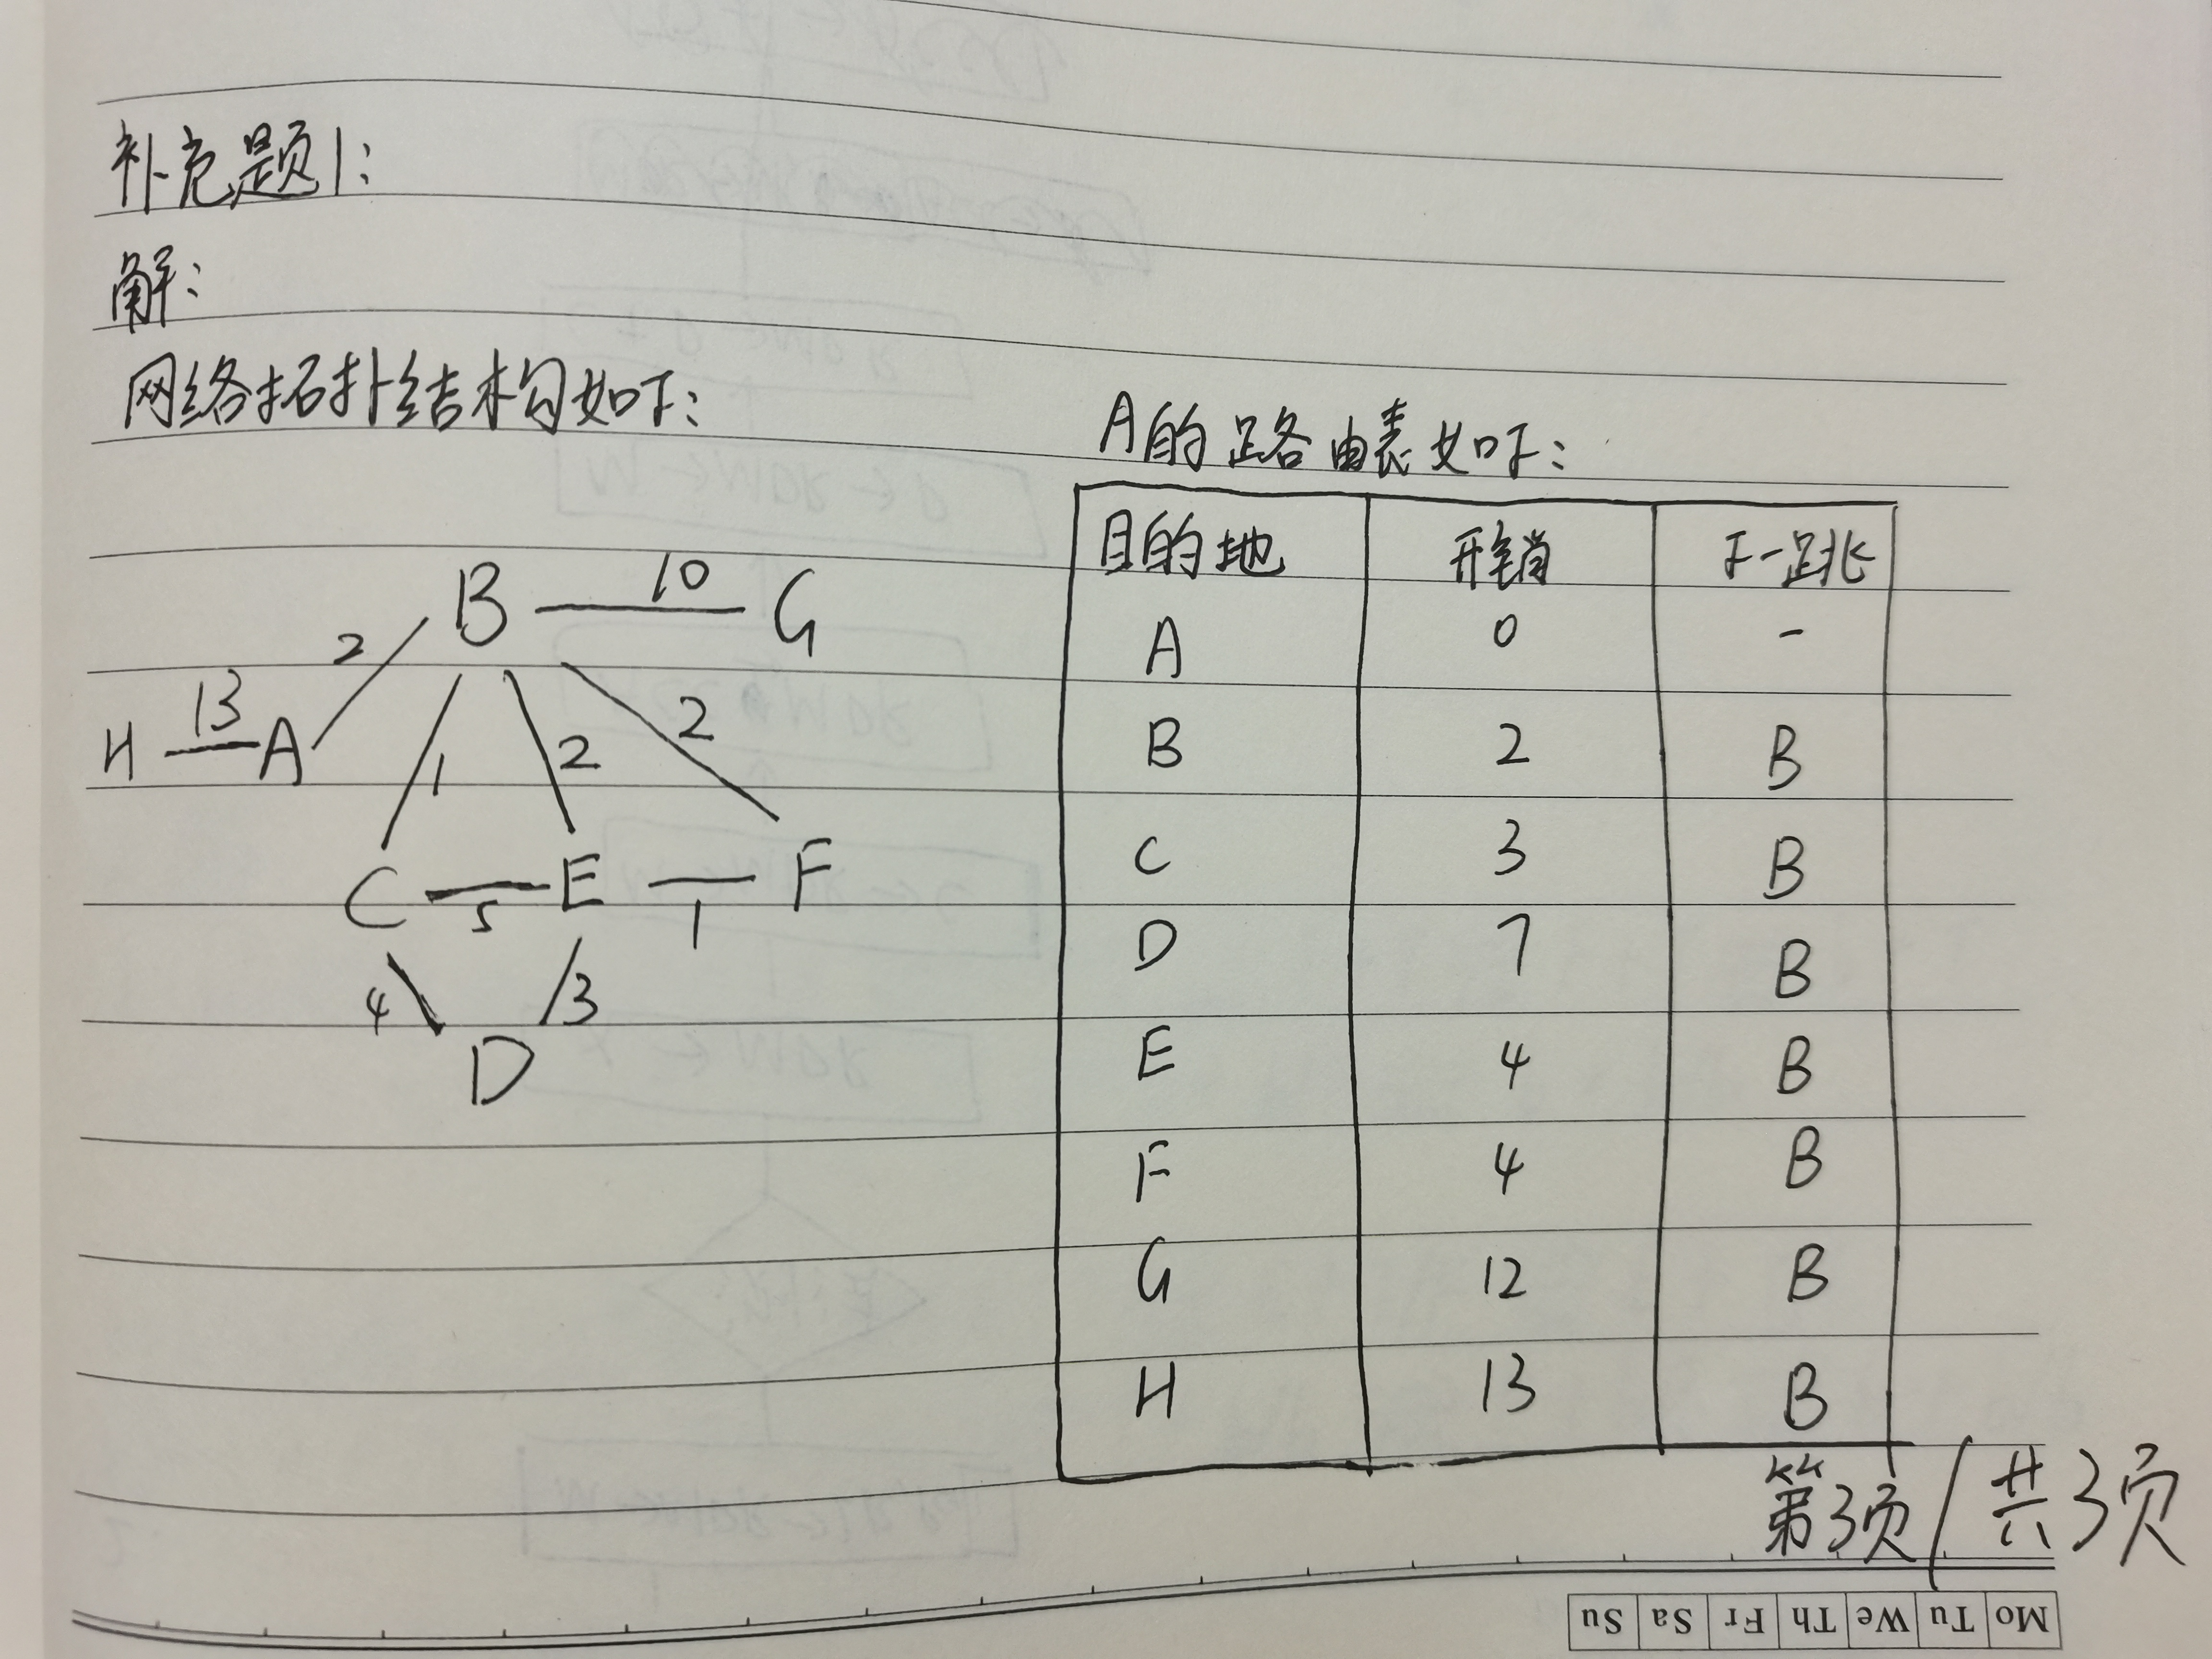 补充题1:
解:
网络拓扑结构如下:
B 10 G
2
H 13 A
1 2 2
C 5 E 1 F
4 3
D
A的路由表如下:
目的地 开销 下一跳
A 0 -
B 2 B
C 3 B
D 7 B
E 4 B
F 4 B
G 12 B
H 13 B
第3页/共3页
Mo Tu We Th Fr Sa Su